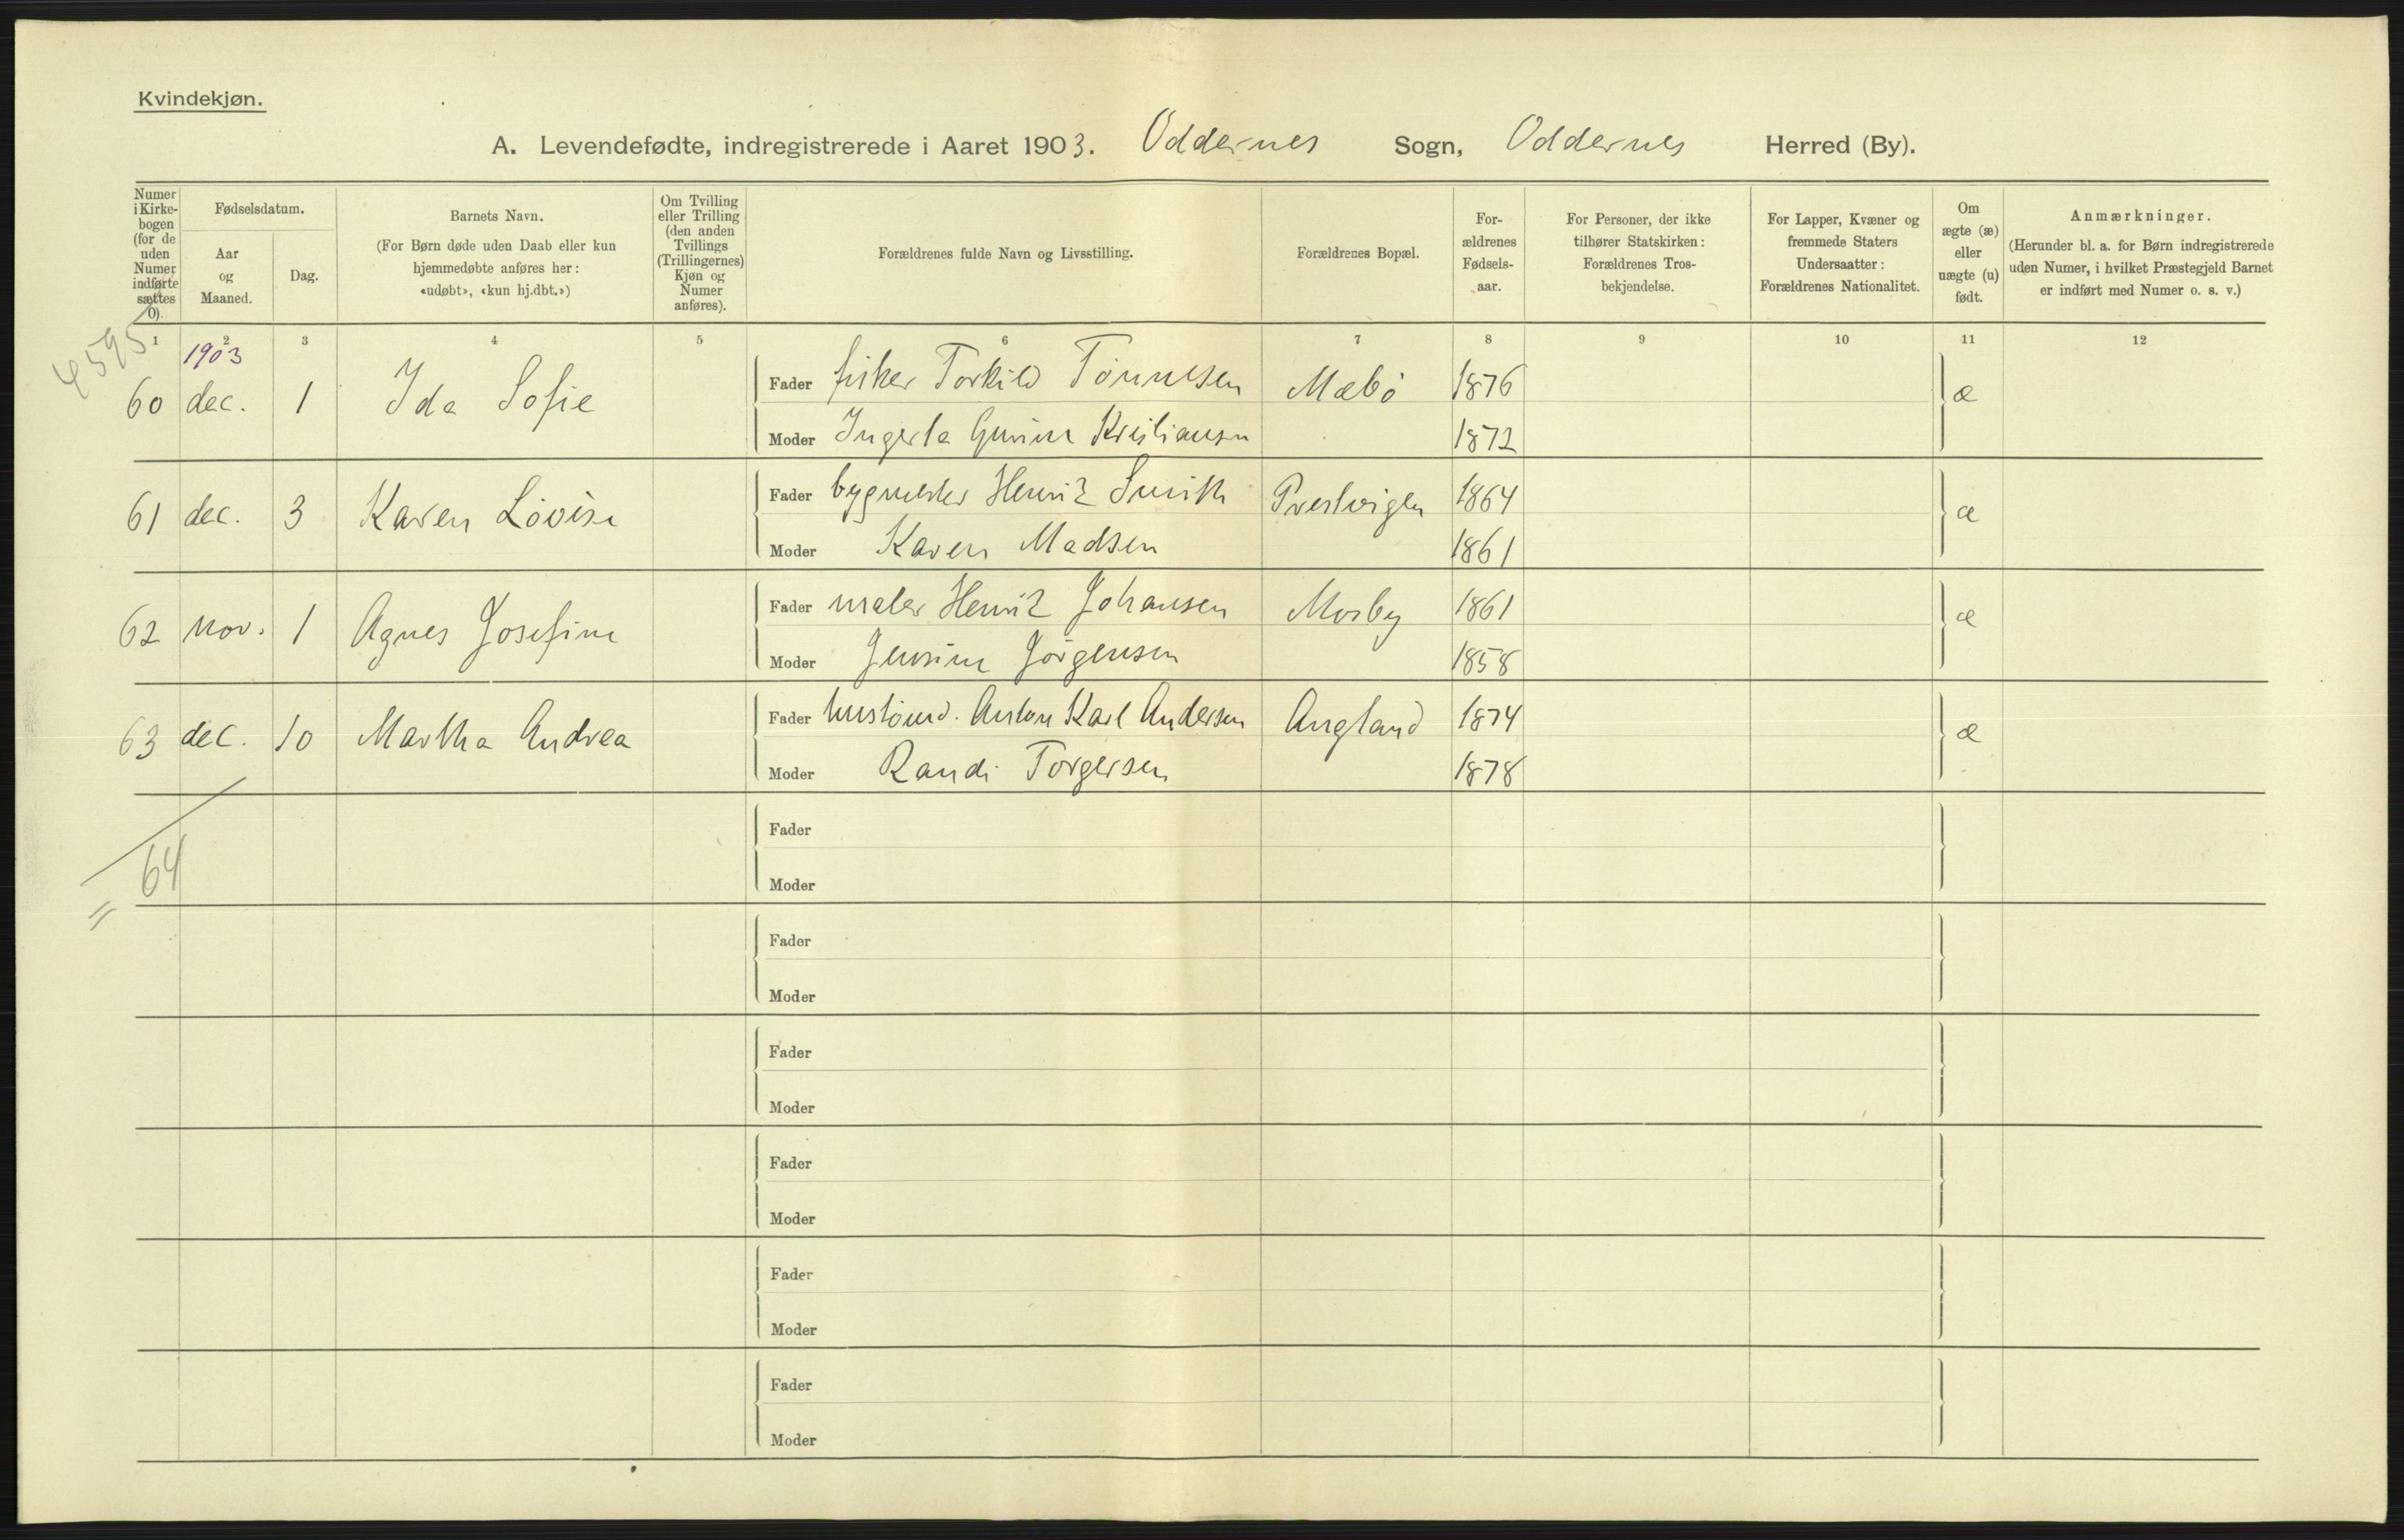 Kvindekjøn.
A. Levendefødte, indregistrerede i Aaret 1903. Oddernes Sogn, Oddernes Herred (By).
Numer i Kirke-bogen (for de uden Numer indførte sættes 0).
Fødselsdatum.
Aar og Maaned.
Dag.
Barnets Navn.
(For Børn døde uden Daab eller kun hjemmedøbte anføres her: «udøbt», «kun hj.dbt.»)
Om Tvilling eller Trilling (den anden Tvillings (Trillingernes) Kjøn og Numer anføres).
Forældrenes fulde Navn og Livsstilling.
Forældrenes Bopæl.
For-ældrenes Fødsels-aar.
For Personer, der ikke tilhører Statskirken: Forældrenes Tros-bekjendelse.
For Lapper, Kvæner og fremmede Staters Undersaatter: Forældrenes Nationalitet.
Om ægte (æ) eller uægte (u) født.
Anmærkninger.
(Herunder bl. a. for Børn indregistrerede uden Numer, i hvilket Præstegjeld Barnet er indført med Numer o. s. v.)
1 2 3 4 5 6 7 8 9 10 11 12
4595
1903
60 dec. 1 Ida Sofie Fader fisker Torkild Tönnesen Mæbö 1876 æ
Moder Ingerta Gurine Kristiansen 1872
61 dec. 3 Karen Lovise Fader bygmester Henrik Smith Prestvigen 1864 æ
Moder Karen Madsen 1861
62 nov. 1 Agnes Josefine Fader maler Henrik Johansen Mosby 1861 æ
Moder Jensine Jörgensen 1858
63 dec. 10 Martha Andrea Fader hustömd. Anton Karl Andersen Augland 1874 æ
Moder Randi Torgersen 1878
64
Fader
Moder
Fader
Moder
Fader
Moder
Fader
Moder
Fader
Moder
Fader
Moder